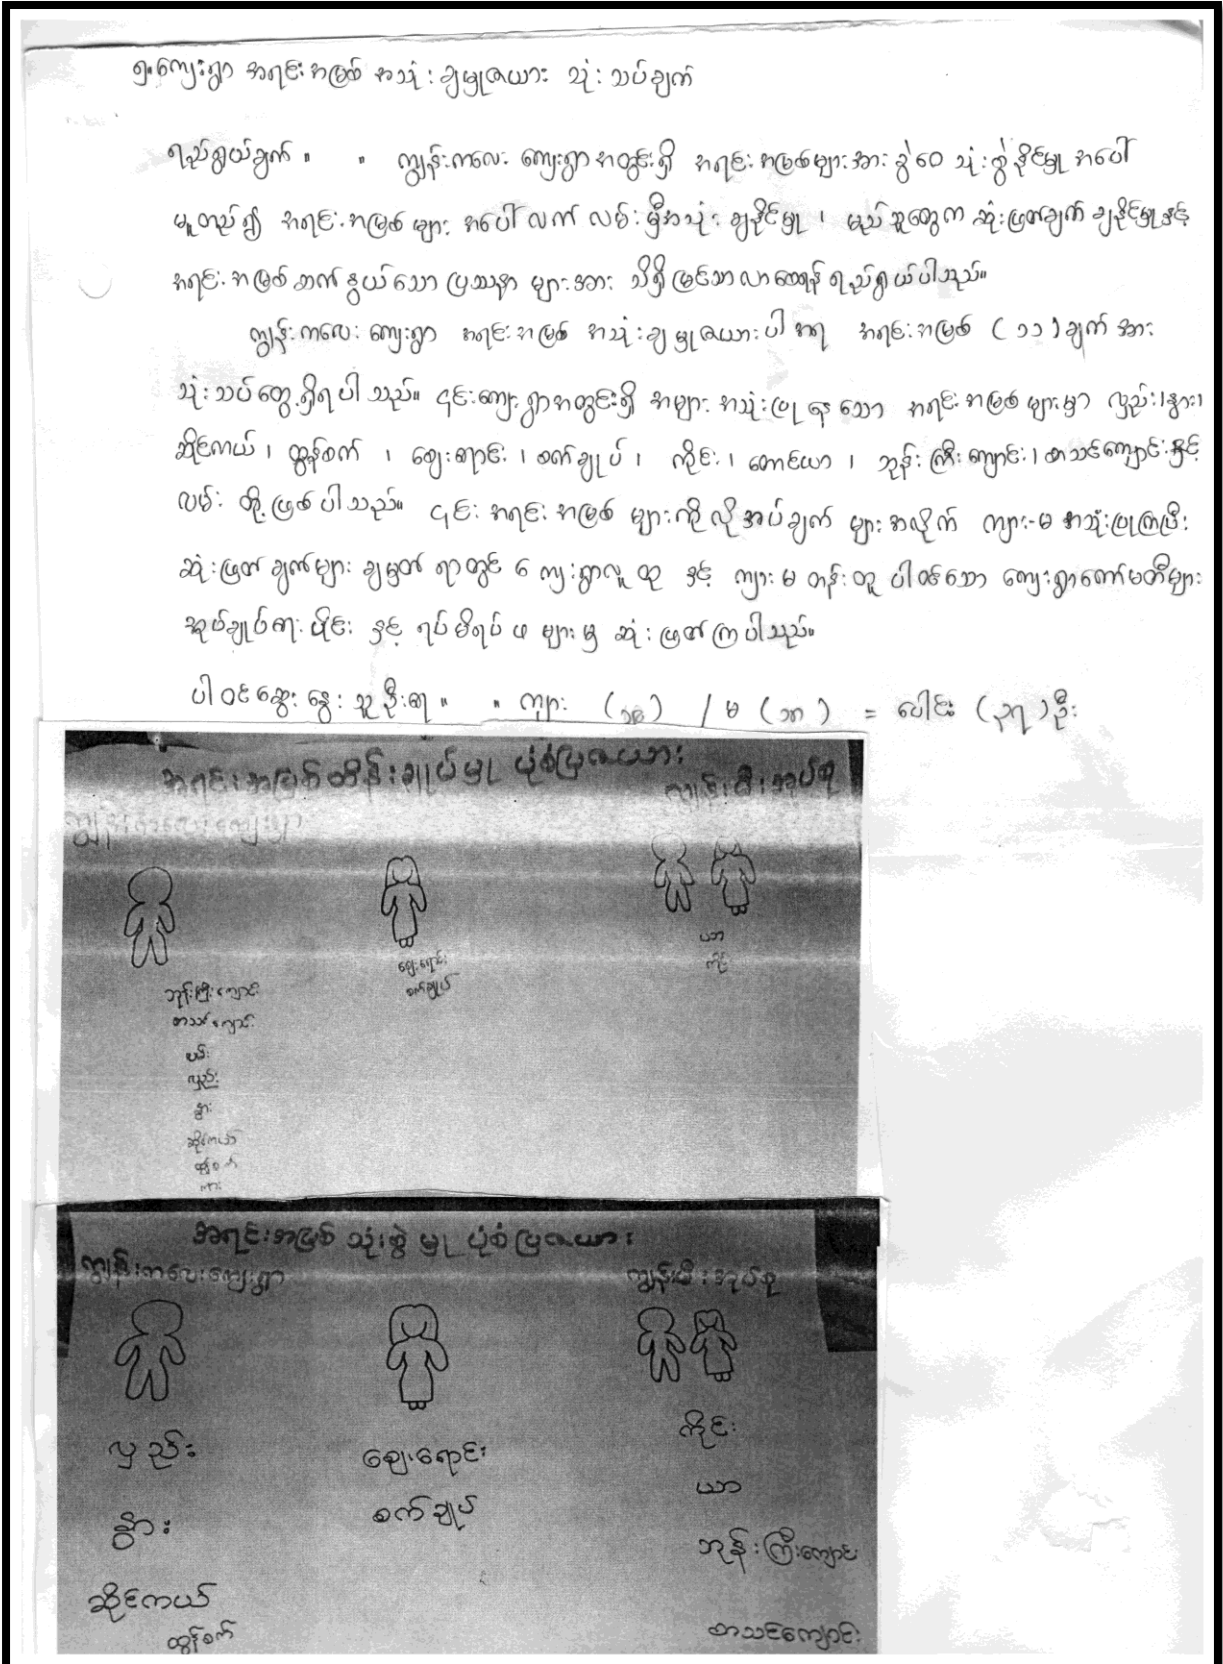 ၅.ကျေးရွာ အရင်းအမြစ် အသုံးချမှုဇယား သုံးသပ်ချက်
ရည်ရွယ်ချက် ။ ။ ကျွန်းကလေး ကျေးရွာအတွင်းရှိ အရင်းအမြစ်များအား ခွဲဝေ သုံးစွဲနိုင်မှု အပေါ်
မူတည်၍ အရင်းအမြစ်များ အပေါ် လက်လမ်းမှီအသုံးချနိုင်မှု ၊ မည်သူတွေက ဆုံးဖြတ်ချက် ချနိုင်မှုနှင့်
အရင်းအမြစ်ဆက်နွယ်သော ပြဿနာ များအား သိရှိမြင်သာလာစေရန် ရည်ရွယ်ပါသည်။
ကျွန်းကလေး ကျေးရွာ အရင်းအမြစ် အသုံးချမှုဇယားပါအရ အရင်းအမြစ် (၁၁) ချက်အား
သုံးသပ်တွေ့ရှိရပါသည်။ ၎င်းကျေးရွာအတွင်းရှိ အများအသုံးပြုနေသော အရင်းအမြစ်များမှာ လှည်း၊နွား၊
ဆိုင်ကယ်၊ ထွန်စက် ၊ ဈေးရောင်း ၊ စက်ချုပ် ၊ ကိုင်း ၊ တောင်ယာ ၊ ဘုန်းကြီးကျောင်း ၊ စာသင်ကျောင်းနှင့်
လမ်း တို့ဖြစ်ပါသည်။ ၎င်းအရင်းအမြစ် များကိုလိုအပ်ချက် များအလိုက် ကျား-မ အသုံးပြုကြပြီး
ဆုံးဖြတ်ချက်များ ချမှတ် ရာတွင် ကျေးရွာလူထု နှင့် ကျားမ တန်းတူ ပါဝင်သော ကျေးရွာကော်မတီများ
အုပ်ချုပ်ရေးပိုင်း နှင့် ရပ်မိရပ်ဖ များမှ ဆုံးဖြတ်ကြပါသည်။
ပါဝင်ဆွေးနွေးသူဦးရေ ။ ။ ကျား / မ = ပေါင်း ဦး
အရင်းအမြစ်ထိန်းချုပ်မှု ပုံစံပြဇယား
ကျွန်းကလေးကျေးရွာ
ဈေးရောင်း
စက်ချုပ်
ယာ
ကိုင်း
ဘုန်းကြီးကျောင်း
စာသင်ကျောင်း
လမ်း
လှည်း
နွား
ဆိုင်ကယ်
ထွန်စက်
အရင်းအမြစ် သုံးစွဲမှု ပုံစံပြဇယား
ကျွန်းကလေးကျေးရွာ
ကိုင်း
လှည်း
ဈေးရောင်း
ယာ
စက်ချုပ်
နွား
ဘုန်းကြီးကျောင်း
ဆိုင်ကယ်
ထွန်စက်
စာသင်ကျောင်း